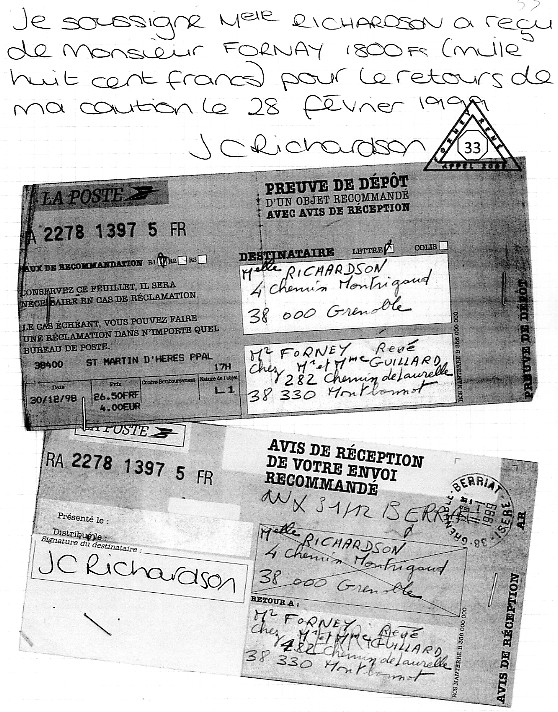 Je soussigne Melle RICHARDSON a reçu
de Monsieur FORNAY 1800Fs (mille
huit cent francs) pour le retours de
ma caution le 28 février 1999
JCRichardson
33
APPEL 2007
LA POSTE
PREUVE DE DÉPÔT
D'UN OBJET RECOMMANDÉ
AVEC AVIS DE RÉCEPTION
A 2278 1397 5 FR
AUX DE RECOMMANDATION
DESTINATAIRE LETTRE COLIS
Melle RICHARDSON
4 chemin Montrigaud
38 000 Grenoble
CONSERVEZ CE FEUILLET, IL SERA
NÉCESSAIRE EN CAS DE RÉCLAMATION.
LE CAS ÉCHÉANT, VOUS POUVEZ FAIRE
UNE RÉCLAMATION DANS N'IMPORTE QUEL
BUREAU DE POSTE.
38400 ST MARTIN D'HERES PPAL
17H
Date Prix Contre-Remboursement Nature de l'objet
30/12/98 26.50FRF L.1
4.00EUR
Mr FORNEY René
Chez Mr et Mme GUILLARD
282 Chemin de Laurelle
38 330 Montbonnot
PREUVE DE DÉPÔT
LA POSTE
RA 2278 1397 5 FR
AVIS DE RÉCEPTION
DE VOTRE ENVOI
RECOMMANDÉ
31/12
BERRIAT
38-GRENOBLE
ISERE
AR
Présenté le :
Distribué le :
Signature du destinataire :
JCRichardson
Melle RICHARDSON
4 chemin Montrigaud
38 000 Grenoble
RETOUR A :
Mr FORNEY René
Chez Mr et Mme GUILLARD
282 Chemin de Laurelle
38 330 Montbonnot
AVIS DE RÉCEPTION